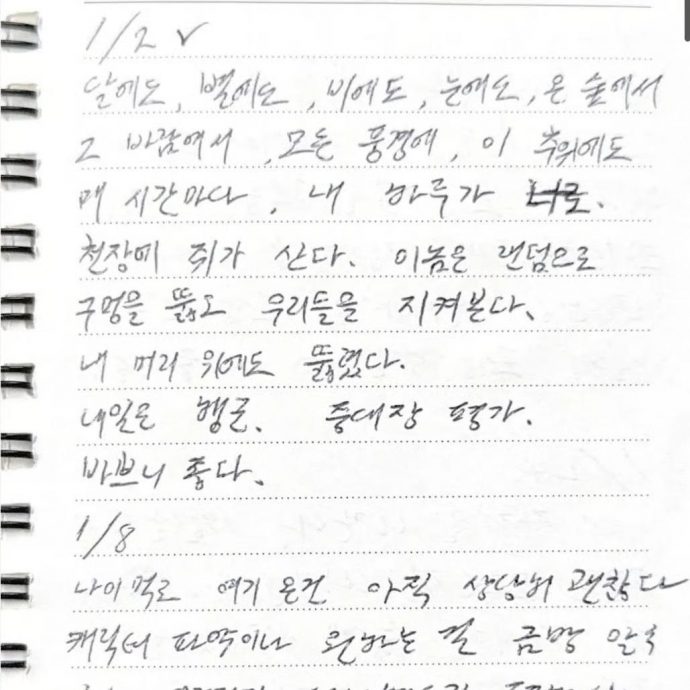 1/2 v
달에도, 별에도, 비에도, 눈에도, 온 숲에서
그 바람에서, 모든 풍경에, 이 추위에도
매 시간마다, 내 하루가
천장에 쥐가 산다. 이놈은 랜덤으로
구멍을 뚫고 우리들을 지켜본다.
내 머리 위에도 뚫렸다.
내일은 행군. 중대장 평가.
바쁘니 좋다.
1/8
나이 먹고 여기 온건 아직 상당히 괜찮다
캐릭터 파악이나 원하는 걸 금방